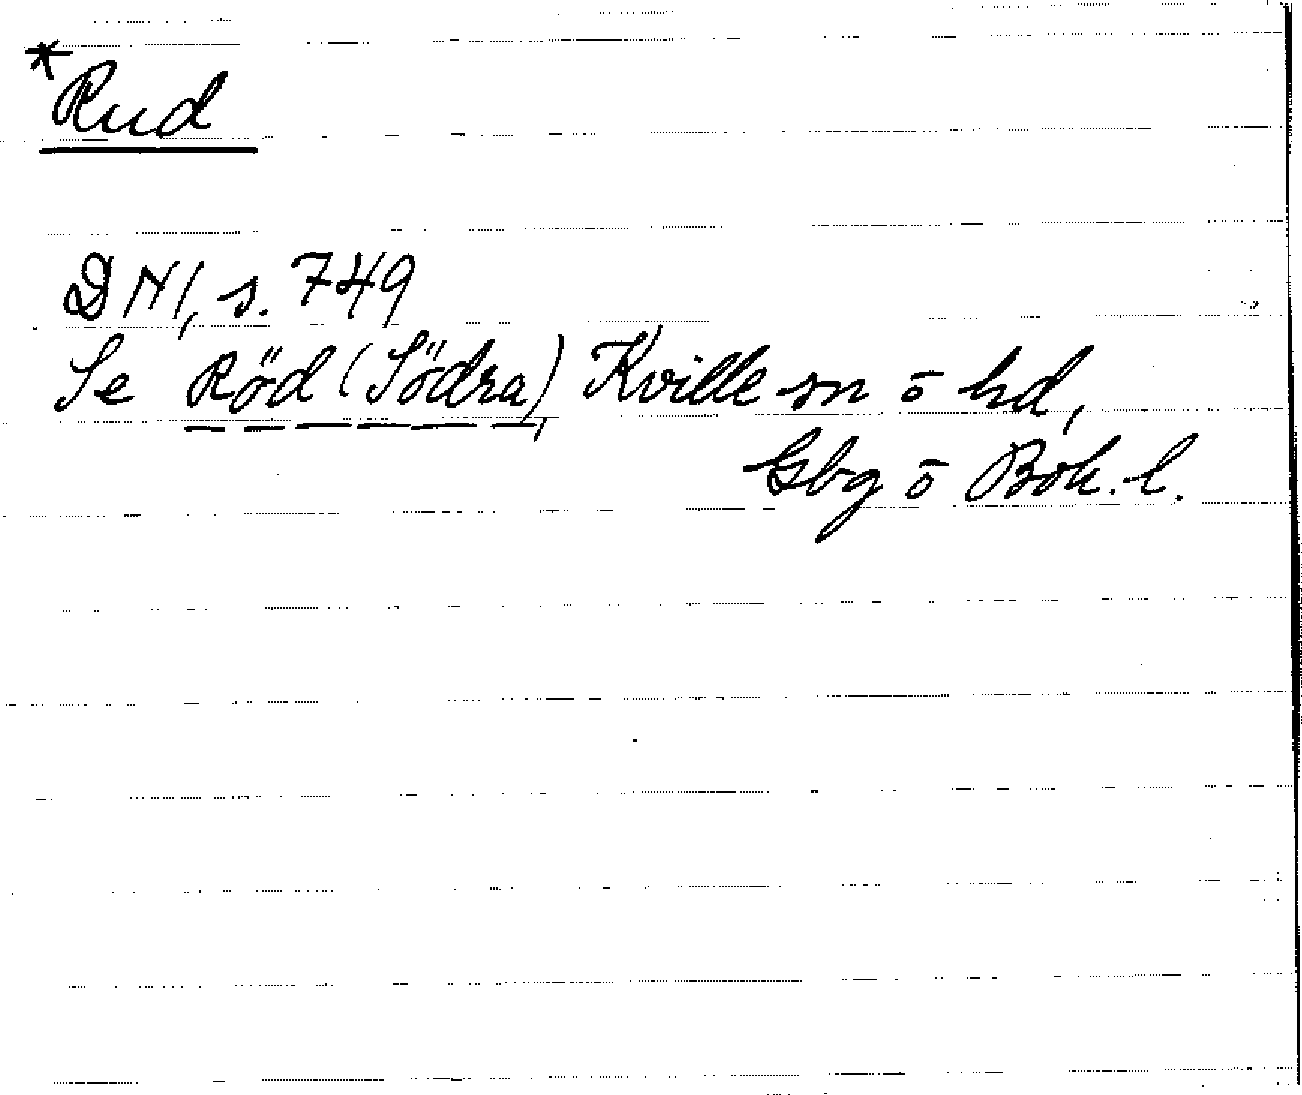 *Rud
DN1, s. 749
Se Röd (Södra), Kville sn o hd,
Gbg o Boh. l.